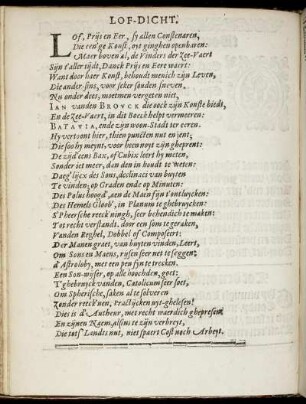 LOF-DICHT.
LOf, Prijs en Eer, sy allen Constenaren,
Die eenige Konst, oyt ginghen openbaren:
Maer boven al, de Vinders der Zee-Vaert
Sijn t'aller tijdt, Danck Prijs en Eere waert:
Want door haer Konst, behoudt menich zijn Leven,
Die ander-sins, voor seker souden sneven,
Nu onder dees, moetmen vergeten niet,
IAN vanden BROVCK die oock zijn Konste biedt,
En de Zee-Vaert, in dit Boeck helpt vermeeren:
BATAVIA, ende zijn woon-Stadt ter eeren.
Hy vertoont hier, thien puncten nut en jent,
Die soo hy meynt, voor heen noyt zijn gheprent:
De zijd' eens Bax, of Cubix leert hy meten,
Sonder iet meer, dan den in houdt te weten:
Daeg'lijcx des Sons, declinaci van buyten
Te vinden; op Graden ende op Minuten:
Des Polus hoogd', aen de Main sijn t'ontsluycken:
Des Hemels Gloob', in Planum te ghebruycken:
S'Pheersche reeck'ningh, seer behendich te maken:
Tot recht verstandt, door een som te geraken,
Vanden Reghel, Dobbel of Composiert:
Der Manen graet, van buyten vinden, Leert,
Om Sons en Maens, rijsen seer net te seggen:
d'Astroloby, met een pen
Een Son-wijser, op alle hoochden, goet:
T'ghebruyck vanden, Catolicum seer soet,
Om Spherische, saken al te solveren
Zonder reeck'nen, Practijcken uyt-ghelesen!
Dies is d'Autheur, met recht waerdich ghepresen
En zijnen Naem, alsins te zijn verbreyt,
Die tot s'Landts nut, niet spaert Cost noch Arbeyt.